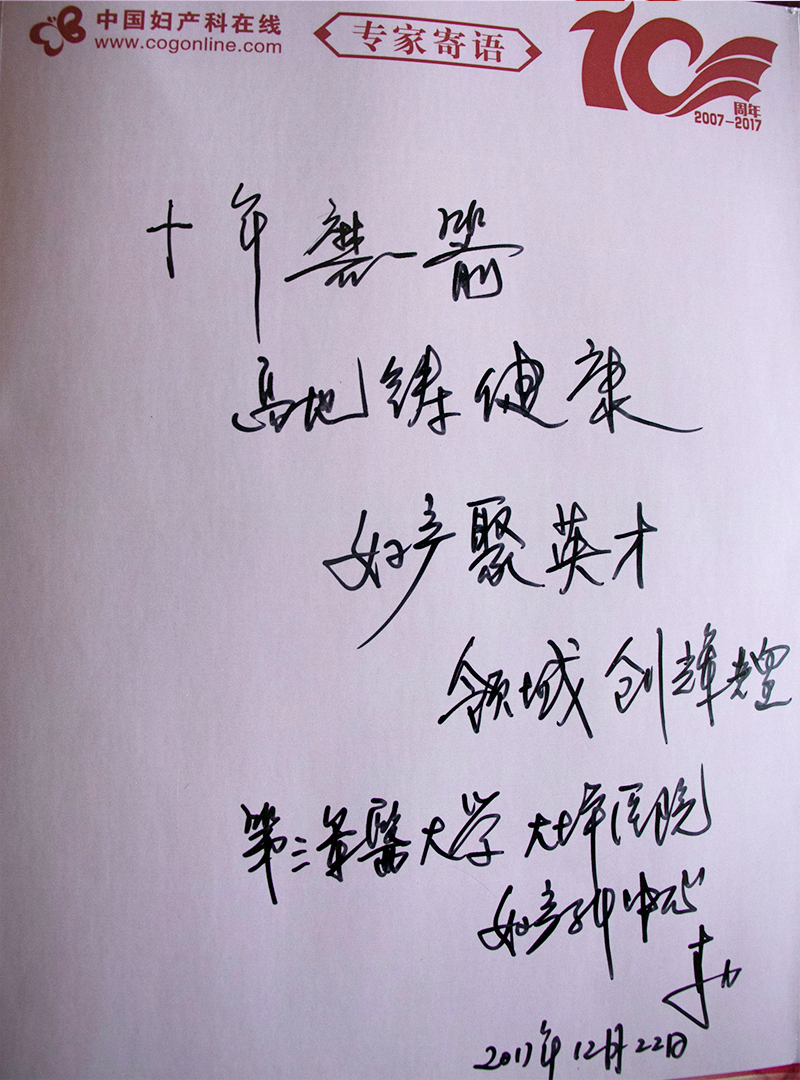 中国妇产科在线
www.cogonline.com
专家寄语
10
周年
2007-2017
十年磨一箭
高地铸健康
妇产聚英才
领域创輝煌
第三軍醫大学 大坪医院
妇产科中心
2017年12月22日